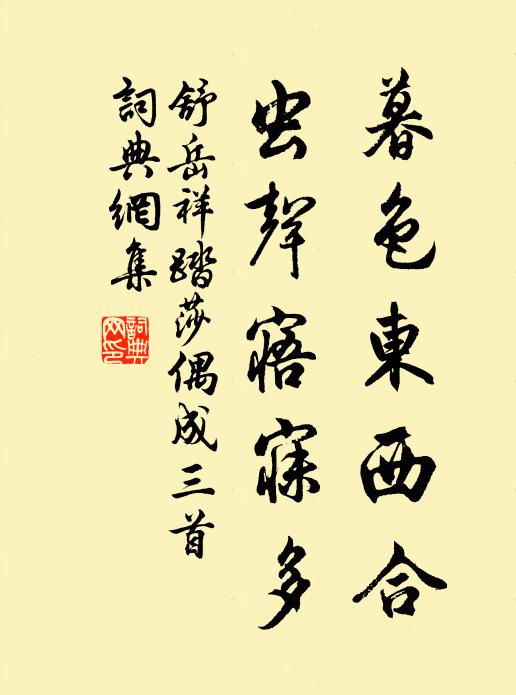 暮色東西合
虫聲寤寐多
舒岳祥踏莎偶成三首
詞典網集
詞典網印